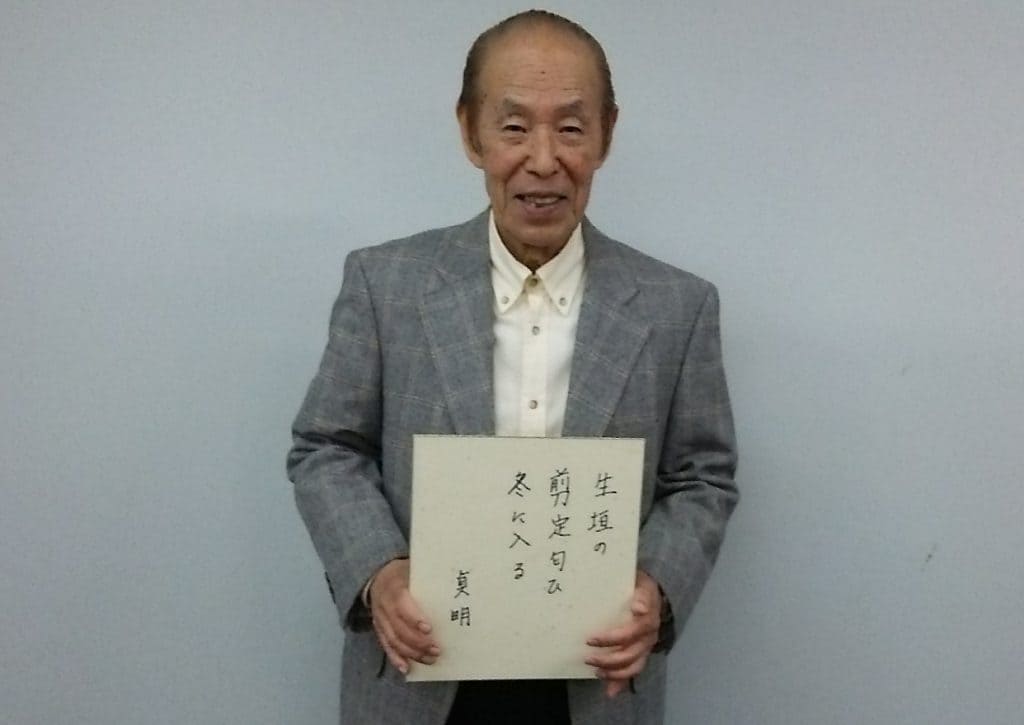 生垣の
剪定匂ひ
冬に入る
貞明